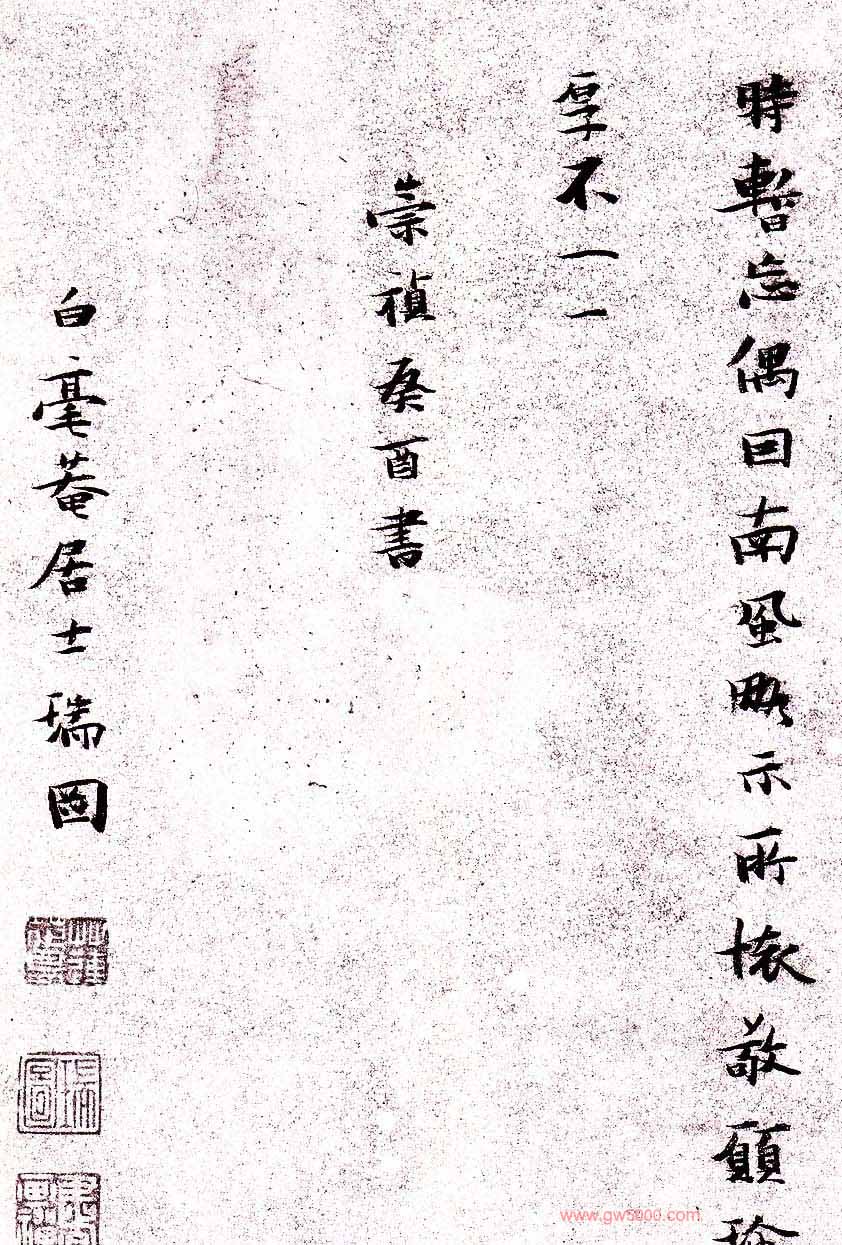 時暫忘偶因南風略示所懷敬願珍
厚不一一
崇禎癸酉書
白毫菴居士瑞圖
瑞圖
www.gw5000.com